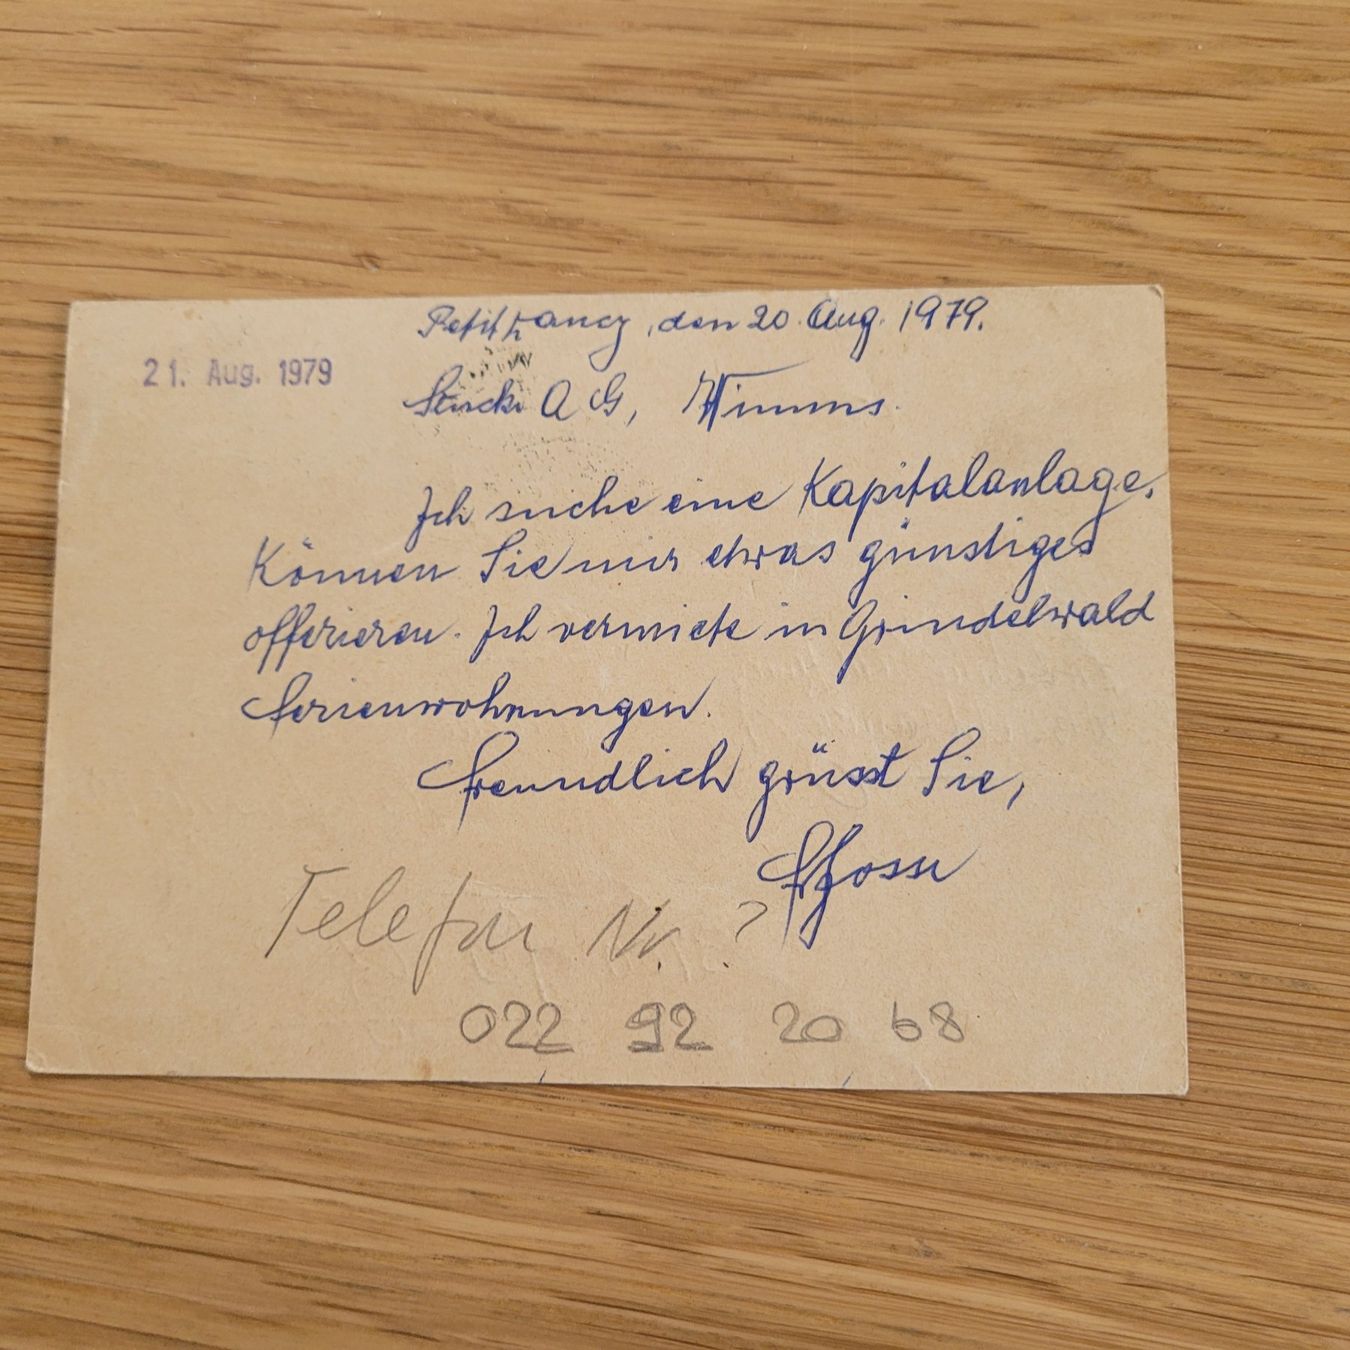 Petit Lancy, den 20. Aug. 1979.
21. Aug. 1979
Stucki AG, Wimmis.
Ich suche eine Kapitalanlage.
Können Sie mir etwas günstiges
offerieren. Ich vermiete in Grindelwald
Ferienwohnungen.
Freundlich grüsst Sie,
Telefon Nr. ?
022 92 20 68